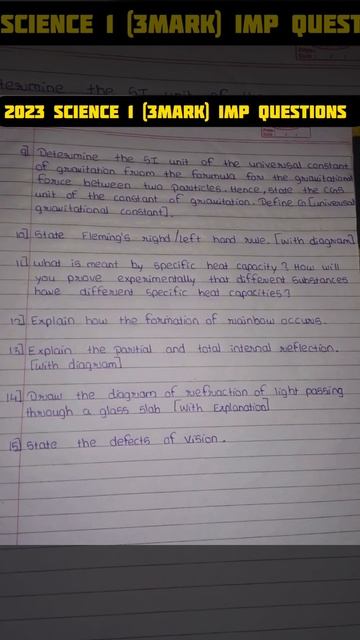 SCIENCE 1 (3MARK) IMP QUEST
2023 SCIENCE 1 (3MARK) IMP QUESTIONS
9] Determine the SI unit of the universal constant
of gravitation from the formula for the gravitational
force between two particles. Hence, state the CGS
unit of the constant of gravitation. Define G [universal
gravitational constant].
10] State Fleming's right/left hand rule. [with diagram]
11] what is meant by specific heat capacity? How will
you prove experimentally that different substances
have different specific heat capacities?
12] Explain how the formation of rainbow occurs.
13] Explain the partial and total internal reflection.
[with diagram]
14] Draw the diagram of refraction of light passing
through a glass slab [with Explanation]
15] State the defects of vision.